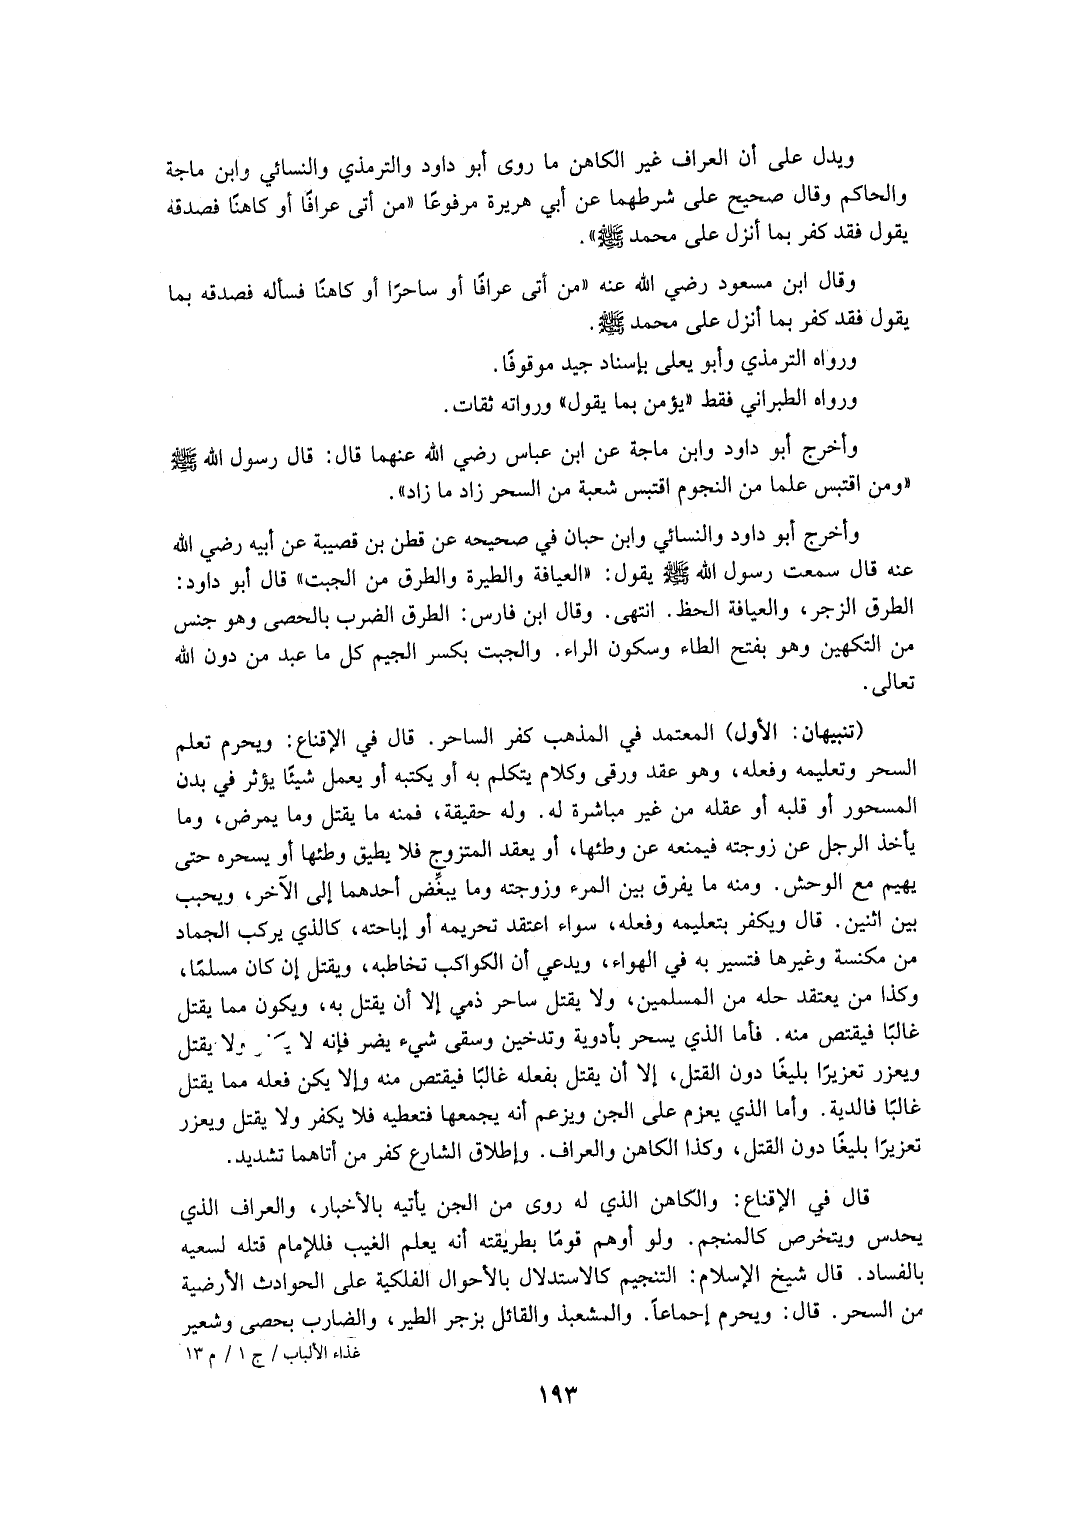 ويدل على أن العراف غير الكاهن ما روى أبو داود والترمذي والنسائي وابن ماجة
والحاكم وقال صحيح على شرطهما عن أبي هريرة مرفوعًا «من أتى عرافًا أو كاهنًا فصدقه
يقول فقد كفر بما أنزل على محمد ﷺ».
وقال ابن مسعود رضي الله عنه «من أتى عرافًا أو ساحرًا أو كاهنًا فسأله فصدقه بما
يقول فقد كفر بما أنزل على محمد ﷺ.
ورواه الترمذي وأبو يعلى بإسناد جيد موقوفًا.
ورواه الطبراني فقط «يؤمن بما يقول» ورواته ثقات.
وأخرج أبو داود وابن ماجة عن ابن عباس رضي الله عنهما قال: قال رسول الله ﷺ
«ومن اقتبس علما من النجوم اقتبس شعبة من السحر زاد ما زاد».
وأخرج أبو داود والنسائي وابن حبان في صحيحه عن قطن بن قصيبة عن أبيه رضي الله
عنه قال سمعت رسول الله ﷺ يقول: «العيافة والطيرة والطرق من الجبت» قال أبو داود:
الطرق الزجر، والعيافة الحظ. انتهى. وقال ابن فارس: الطرق الضرب بالحصى وهو جنس
من التكهين وهو بفتح الطاء وسكون الراء. والجبت بكسر الجيم كل ما عبد من دون الله
تعالى.
(تنبيهان: الأول) المعتمد في المذهب كفر الساحر. قال في الإقناع: ويحرم تعلم
السحر وتعليمه وفعله، وهو عقد ورقى وكلام يتكلم به أو يكتبه أو يعمل شيئًا يؤثر في بدن
المسحور أو قلبه أو عقله من غير مباشرة له. وله حقيقة، فمنه ما يقتل وما يمرض، وما
يأخذ الرجل عن زوجته فيمنعه عن وطئها، أو يعقد المتزوج فلا يطيق وطئها أو يسحره حتى
يهيم مع الوحش. ومنه ما يفرق بين المرء وزوجته وما يبغِّض أحدهما إلى الآخر، ويحبب
بين اثنين. قال ويكفر بتعليمه وفعله، سواء اعتقد تحريمه أو إباحته، كالذي يركب الجماد
من مكنسة وغيرها فتسير به في الهواء، ويدعي أن الكواكب تخاطبه، ويقتل إن كان مسلمًا،
وكذا من يعتقد حله من المسلمين، ولا يقتل ساحر ذمي إلا أن يقتل به، ويكون مما يقتل
غالبًا فيقتص منه. فأما الذي يسحر بأدوية وتدخين وسقى شيء يضر فإنه لا ولا يقتل
ويعزر تعزيرًا بليغًا دون القتل، إلا أن يقتل بفعله غالبًا فيقتص منه وإلا يكن فعله مما يقتل
غالبًا فالدية. وأما الذي يعزم على الجن ويزعم أنه يجمعها فتعطيه فلا يكفر ولا يقتل ويعزر
تعزيرًا بليغًا دون القتل، وكذا الكاهن والعراف. وإطلاق الشارع كفر من أتاهما تشديد.
قال في الإقناع: والكاهن الذي له روى من الجن يأتيه بالأخبار، والعراف الذي
يحدس ويتخرص كالمنجم. ولو أوهم قومًا بطريقته أنه يعلم الغيب فللإمام قتله لسعيه
بالفساد. قال شيخ الإسلام: التنجيم كالاستدلال بالأحوال الفلكية على الحوادث الأرضية
من السحر. قال: ويحرم إجماعاً. والمشعبذ والقائل بزجر الطير، والضارب بحصى وشعير
غذاء الألباب/ ج ١/ م ١٣
١٩٣